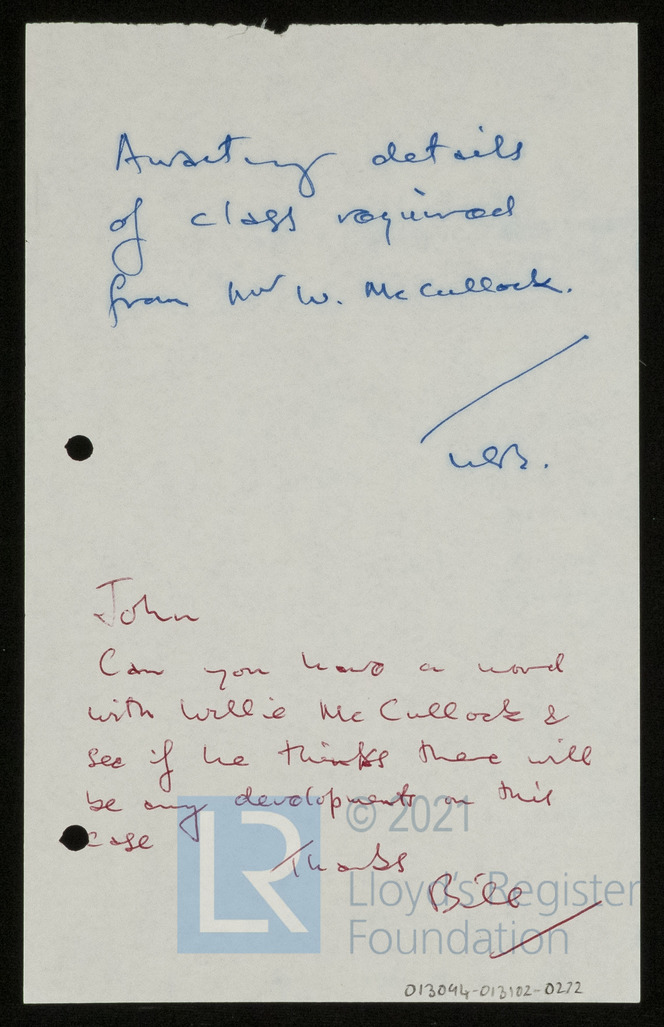 Awaiting details
of class required
from Mr W. McCullock.
John
Can you have a word
with Willie McCullock &
see if he thinks there will
be any developments on this
case
Thanks
Bill
© 2021
LR
Lloyd's Register
Foundation
013094-013102-0272